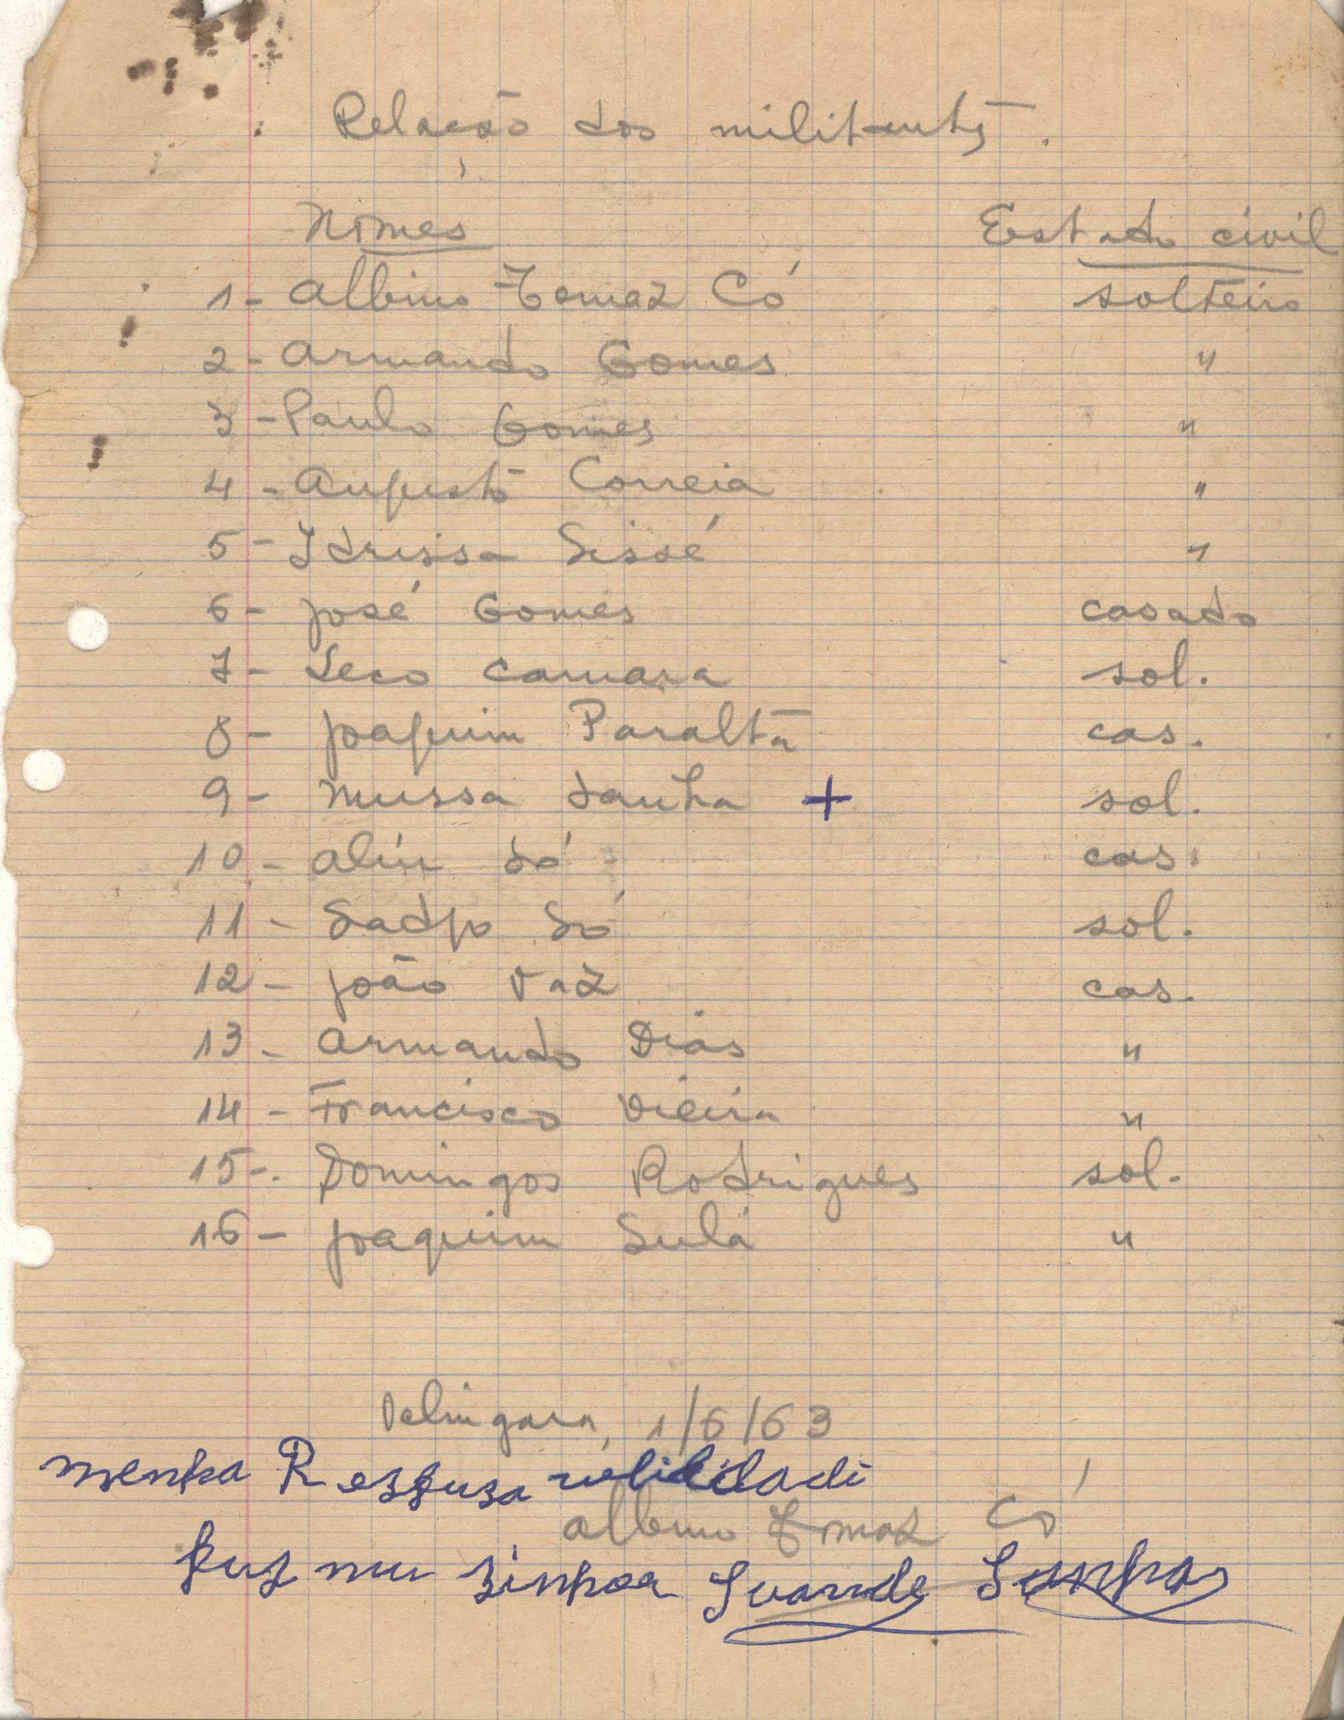 Relação dos militantes.
Nomes Estado civil
1- Albino Tomaz Có solteiro
2- Armando Gomes "
3- Paulo Gomes "
4- Augusto Correia "
5- Idrissa Sissé "
6- José Gomes casado
7- Seco Camara sol.
8- Joaquim Paralta cas.
9- Mussa Sanha + sol.
10- Aliu Só cas.
11- Sadjo Só sol.
12- João Vaz cas.
13- Armando Dias "
14- Francisco Vieira "
15-. Domingos Rodrigues sol.
16- Joaquim Sulá "
Velingara, 1/6/63
menha Resspusa
Albino Tomaz Có